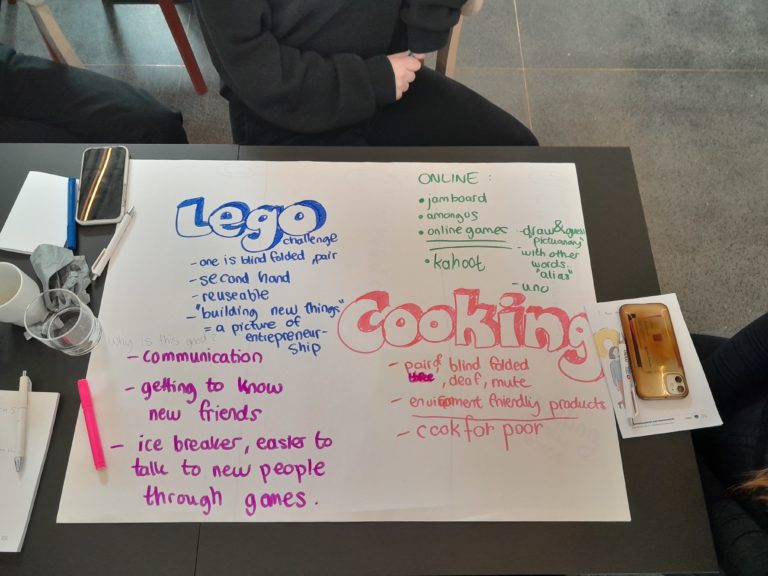 Lego
challenge
- one is blind folded, pair
- second hand
- reuseable
- "building new things"
= a picture of
entrepreneur-
ship
why is this good?
- communication
- getting to know
new friends
- ice breaker, easier to
talk to new people
through games.
ONLINE :
• jamboard
• amongus
• online games
• kahoot
- draw & guess
pictionary
with other
words.
"alias"
- uno
Cooking
- pair of blind folded
, deaf, mute
- enviroment friendly products
- cook for poor